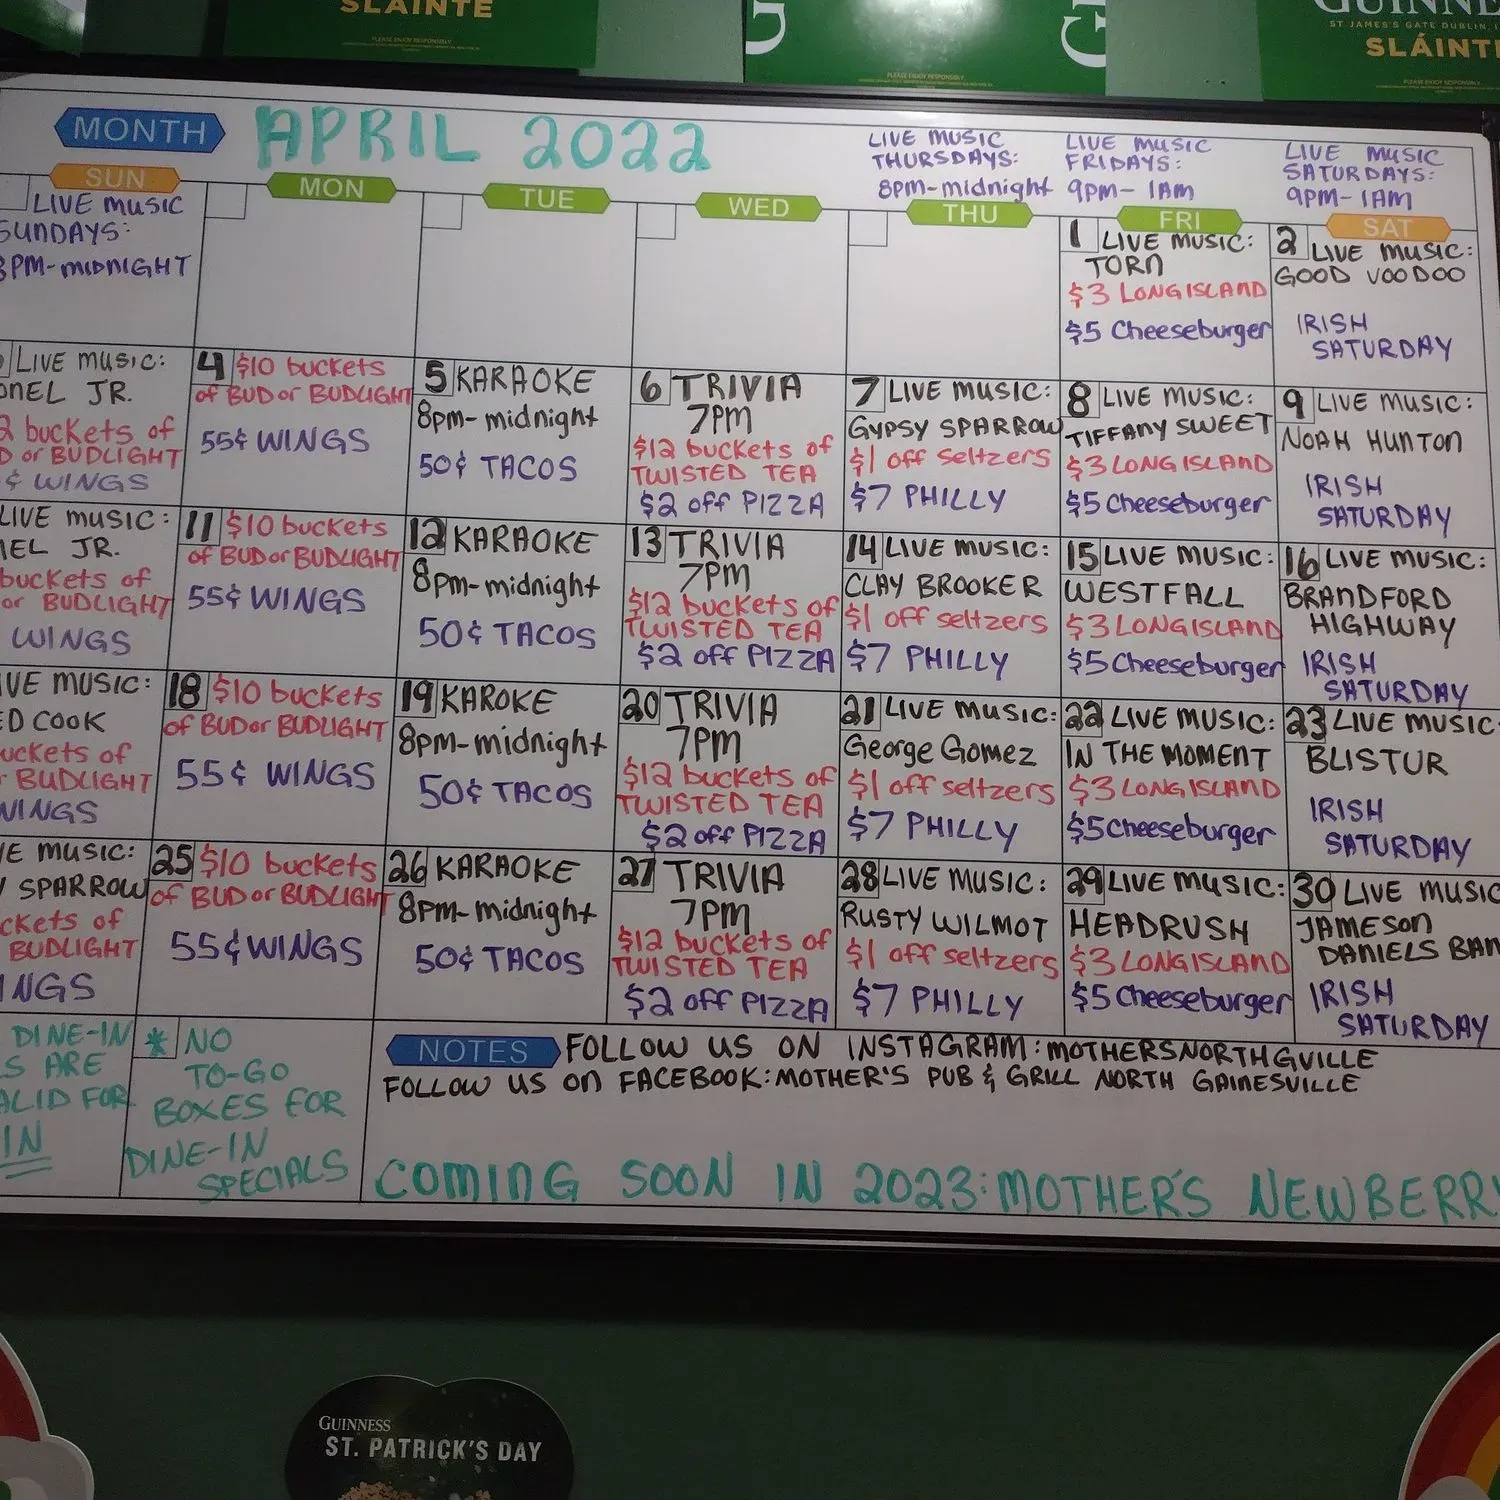 SLÁINTE
PLEASE ENJOY RESPONSIBLY.
G
PLEASE ENJOY RESPONSIBLY.
G
ST JAMES'S GATE DUBLIN
MONTH
APRIL 2022
LIVE MUSIC
THURSDAYS:
8PM-midnight
LIVE MUSIC
FRIDAYS:
9PM-1AM
LIVE MUSIC
SATURDAYS:
9PM-1AM
SUN
MON
TUE
WED
THU
FRI
SAT
LIVE MUSIC
SUNDAYS:
8PM-MIDNIGHT
1 LIVE MUSIC:
TORN
$3 LONGISLAND
$5 Cheeseburger
2 LIVE MUSIC:
GOOD VOODOO
IRISH
SATURDAY
LIVE MUSIC:
ONEL JR.
2 buckets of
D or BUDLIGHT
¢ WINGS
4 $10 buckets
of BUD or BUDLIGHT
55¢ WINGS
5 KARAOKE
8pm-midnight
50¢ TACOS
6 TRIVIA
7PM
$12 buckets of
TWISTED TEA
$2 off PIZZA
7 LIVE MUSIC:
GYPSY SPARROW
$1 off seltzers
$7 PHILLY
8 LIVE MUSIC:
TIFFANY SWEET
$3 LONGISLAND
$5 Cheeseburger
9 LIVE MUSIC:
NOAH HUNTON
IRISH
SATURDAY
LIVE MUSIC:
NEL JR.
buckets of
or BUDLIGHT
WINGS
11 $10 buckets
of BUD or BUDLIGHT
55¢ WINGS
12 KARAOKE
8pm-midnight
50¢ TACOS
13 TRIVIA
7PM
$12 buckets of
TWISTED TEA
$2 off PIZZA
14 LIVE MUSIC:
CLAY BROOKER
$1 off seltzers
$7 PHILLY
15 LIVE MUSIC:
WESTFALL
$3 LONGISLAND
$5 Cheeseburger
16 LIVE MUSIC:
BRANDFORD
HIGHWAY
IRISH
SATURDAY
IVE MUSIC:
ED COOK
uckets of
BUDLIGHT
WINGS
18 $10 buckets
of BUD or BUDLIGHT
55¢ WINGS
19 KAROKE
8pm-midnight
50¢ TACOS
20 TRIVIA
7PM
$12 buckets of
TWISTED TEA
$2 off PIZZA
21 LIVE MUSIC:
George Gomez
$1 off seltzers
$7 PHILLY
22 LIVE MUSIC:
IN THE MOMENT
$3 LONGISLAND
$5 Cheeseburger
23 LIVE MUSIC:
BLISTUR
IRISH
SATURDAY
VE MUSIC:
Y SPARROW
ckets of
BUDLIGHT
INGS
25 $10 buckets
of BUD or BUDLIGHT
55¢ WINGS
26 KARAOKE
8pm-midnight
50¢ TACOS
27 TRIVIA
7PM
$12 buckets of
TWISTED TEA
$2 off PIZZA
28 LIVE MUSIC:
RUSTY WILMOT
$1 off seltzers
$7 PHILLY
29 LIVE MUSIC:
HEADRUSH
$3 LONGISLAND
$5 Cheeseburger
30 LIVE MUSIC
JAMESON
DANIELS BAN
IRISH
SATURDAY
DINE-IN
S ARE
ALID FOR
IN
* NO
TO-GO
BOXES FOR
DINE-IN
SPECIALS
NOTES FOLLOW US ON INSTAGRAM: MOTHERSNORTHGVILLE
FOLLOW US ON FACEBOOK: MOTHER'S PUB & GRILL NORTH GAINESVILLE
COMING SOON IN 2023: MOTHER'S NEWBERRY
GUINNESS
ST. PATRICK'S DAY